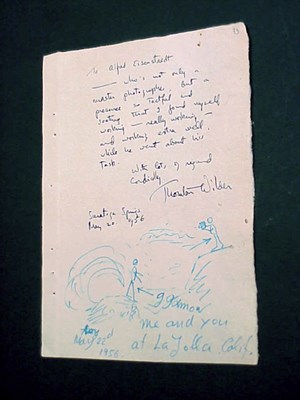 To Alfred Eisenstaedt
— who's not only a
master photographer, but a
presence so tactful and
soothing that I found myself
working — really working —
and working extra well,
while he went about his
task.
With lots of regard
Cordially
Thornton Wilder
Saratoga Springs
May 20 1956
me and you
at La Jolla Calif.
22d
1956